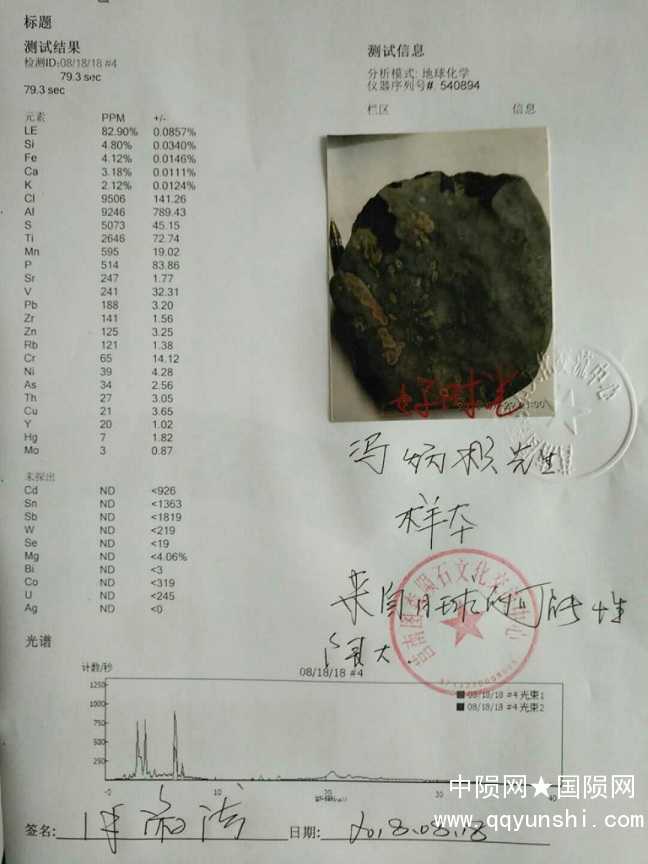 标题
测试结果
检测ID:08/18/18 #4
79.3 sec
79.3 sec
测试信息
分析模式: 地球化学
仪器序列号#. 540894
栏区 信息
元素 PPM +/-
LE 82.90% 0.0857%
Si 4.80% 0.0340%
Fe 4.12% 0.0146%
Ca 3.18% 0.0111%
K 2.12% 0.0124%
Cl 9506 141.26
Al 9246 789.43
S 5073 45.15
Ti 2646 72.74
Mn 595 19.02
P 514 83.86
Sr 247 1.77
V 241 32.31
Pb 188 3.20
Zr 141 1.56
Zn 125 3.25
Rb 121 1.38
Cr 65 14.12
Ni 39 4.28
As 34 2.56
Th 27 3.05
Cu 21 3.65
Y 20 1.02
Hg 7 1.82
Mo 3 0.87
未探出
Cd ND <926
Sn ND <1363
Sb ND <1819
W ND <219
Se ND <19
Mg ND <4.06%
Bi ND <3
Co ND <319
U ND <245
Ag ND <0
好时光
先生
样本
来自月球的可能性
大.
石文化交 中心
光谱
计数/秒
08/18/18 #4
08/18/18 #4 光束1
08/18/18 #4 光束2
1250
1000
750
500
250
0 10 20 30 40
签名: 日期: 2018.08.18
中陨网★国陨网
www.qqyunshi.com